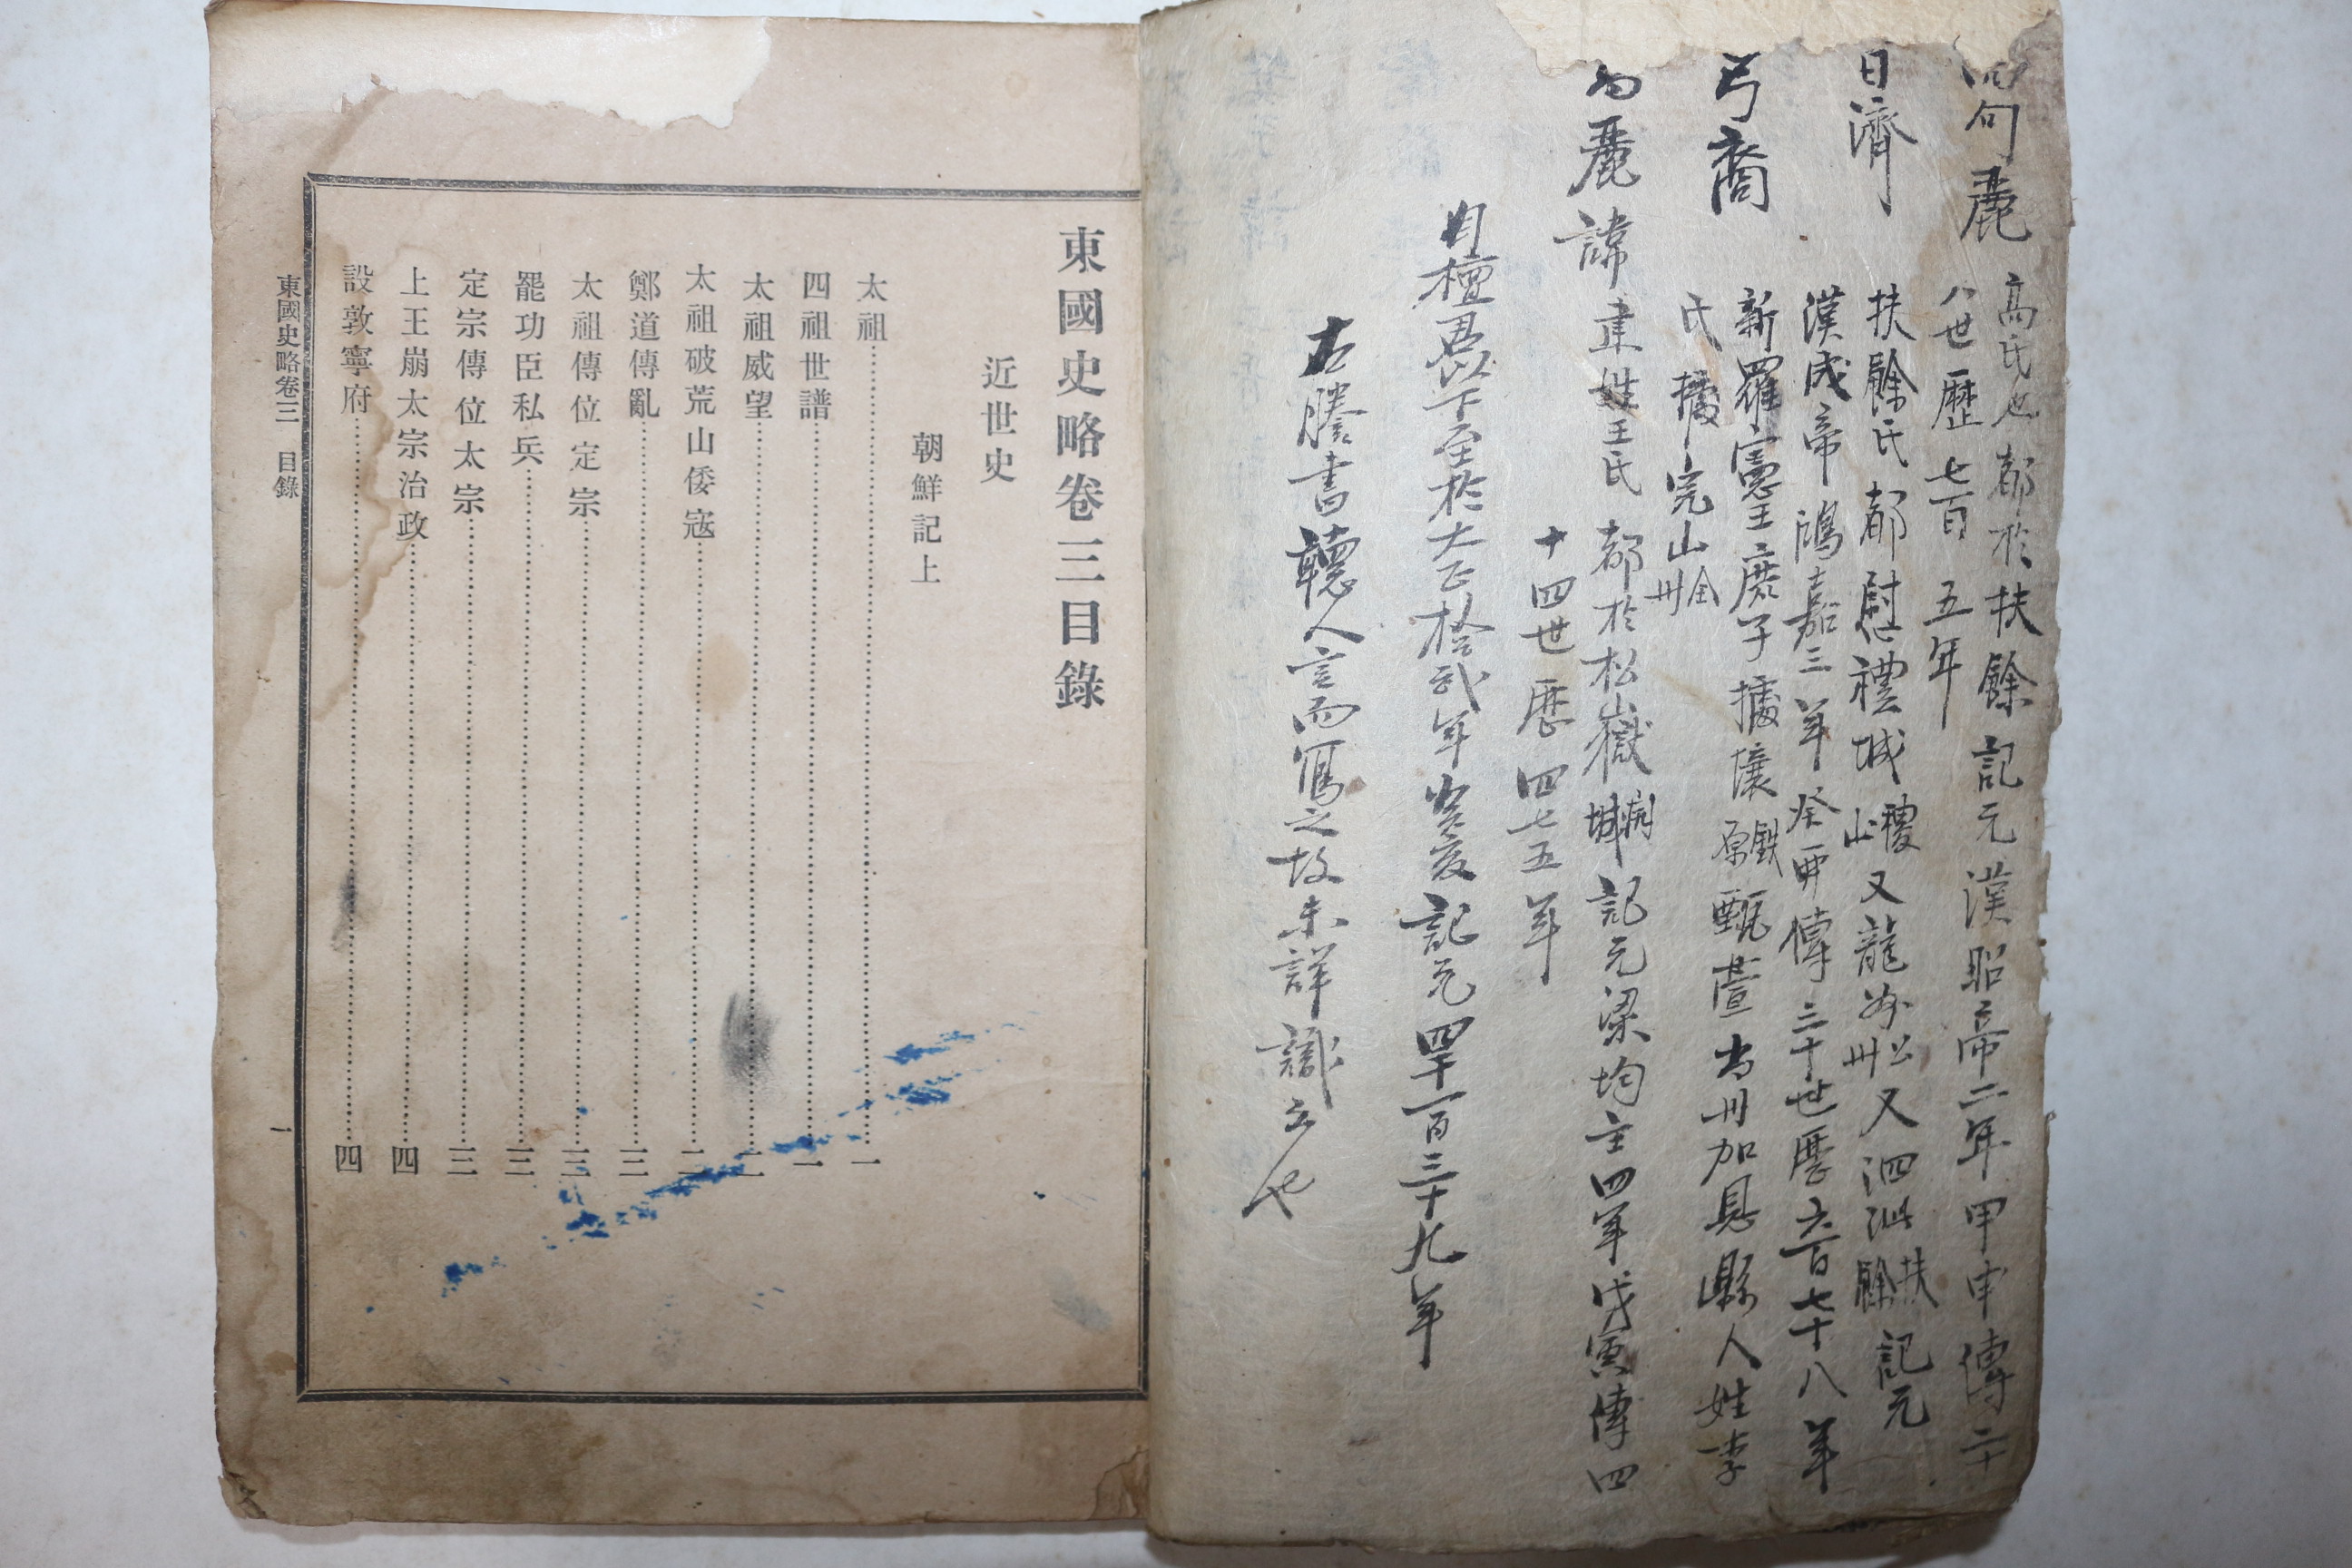 句麗 高氏也都於扶餘記元漢昭帝二年甲申傳二十
八世歷七百五年
濟 扶餘氏都慰禮城稷山又龍泉公州又泗沘扶餘記元
漢成帝鴻嘉三年癸酉傳三十世歷六百七十八年
弓裔 新羅憲王庶子據壤鉄原甄萱尙州加恩縣人姓李
氏據完山全州
麗 諱建姓王氏都於松嶽開城記元梁均主四年戊寅傳四
十四世歷四七五年
自檀君以下至於大正拾弐年癸亥記元四千二百三十九年
右謄書聽人言而寫之故未詳識之也
東國史略卷三目錄
近世史
朝鮮記上
太祖……一
四祖世譜……一
太祖威望……二
太祖破荒山倭寇……二
鄭道傳亂……三
太祖傳位定宗……三
罷功臣私兵……三
定宗傳位太宗……三
上王崩太宗治政……四
設敦寧府……四
東國史略卷三 目錄 一